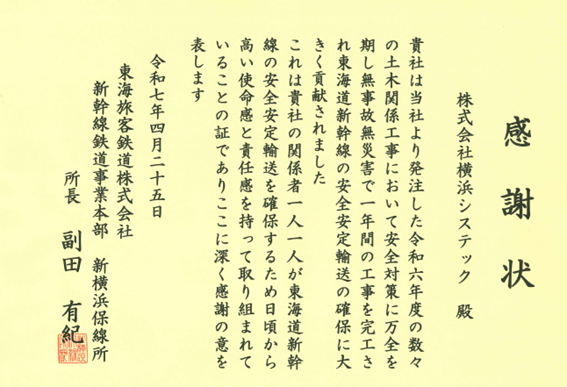 感謝状
株式会社横浜システック 殿
貴社は当社より発注した令和六年度の数々
の土木関係工事において安全対策に万全を
期し無事故無災害で一年間の工事を完工さ
れ東海道新幹線の安全安定輸送の確保に大
きく貢献されました
これは貴社の関係者一人一人が東海道新幹
線の安全安定輸送を確保するため日頃から
高い使命感と責任感を持って取り組まれて
いることの証でありここに深く感謝の意を
表します
令和七年四月二十五日
東海旅客鉄道株式会社
新幹線鉄道事業本部 新横浜保線所
所長 副田 有紀